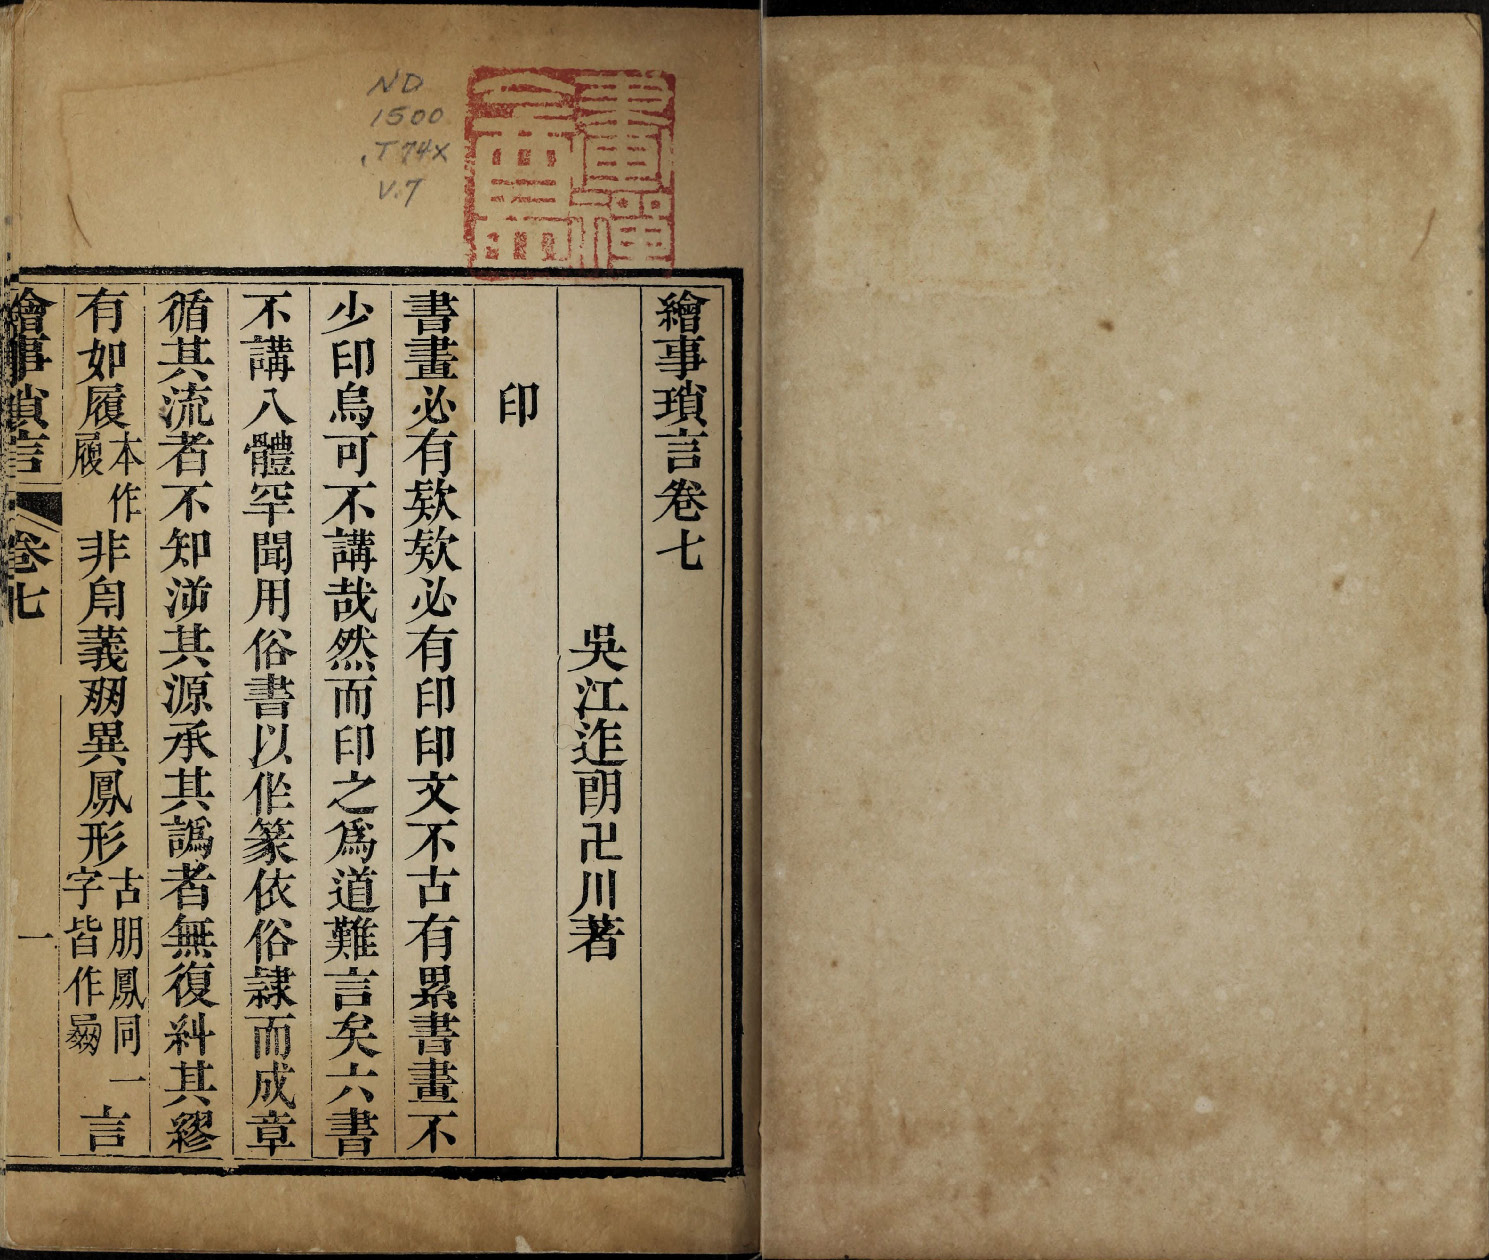 ND
1500
.T74X
V.7
繪事瑣言卷七
吳江迮朗卍川著
印
書畫必有欵欵必有印印文不古有累書畫不
少印烏可不講哉然而印之爲道難言矣六書
不講八體罕聞用俗書以作篆依俗隷而成章
循其流者不知泝其源承其譌者無復糾其繆
有如履本作履非㠯義殊異鳳形古朋鳳同一字皆作言
繪事瑣言 卷七 一